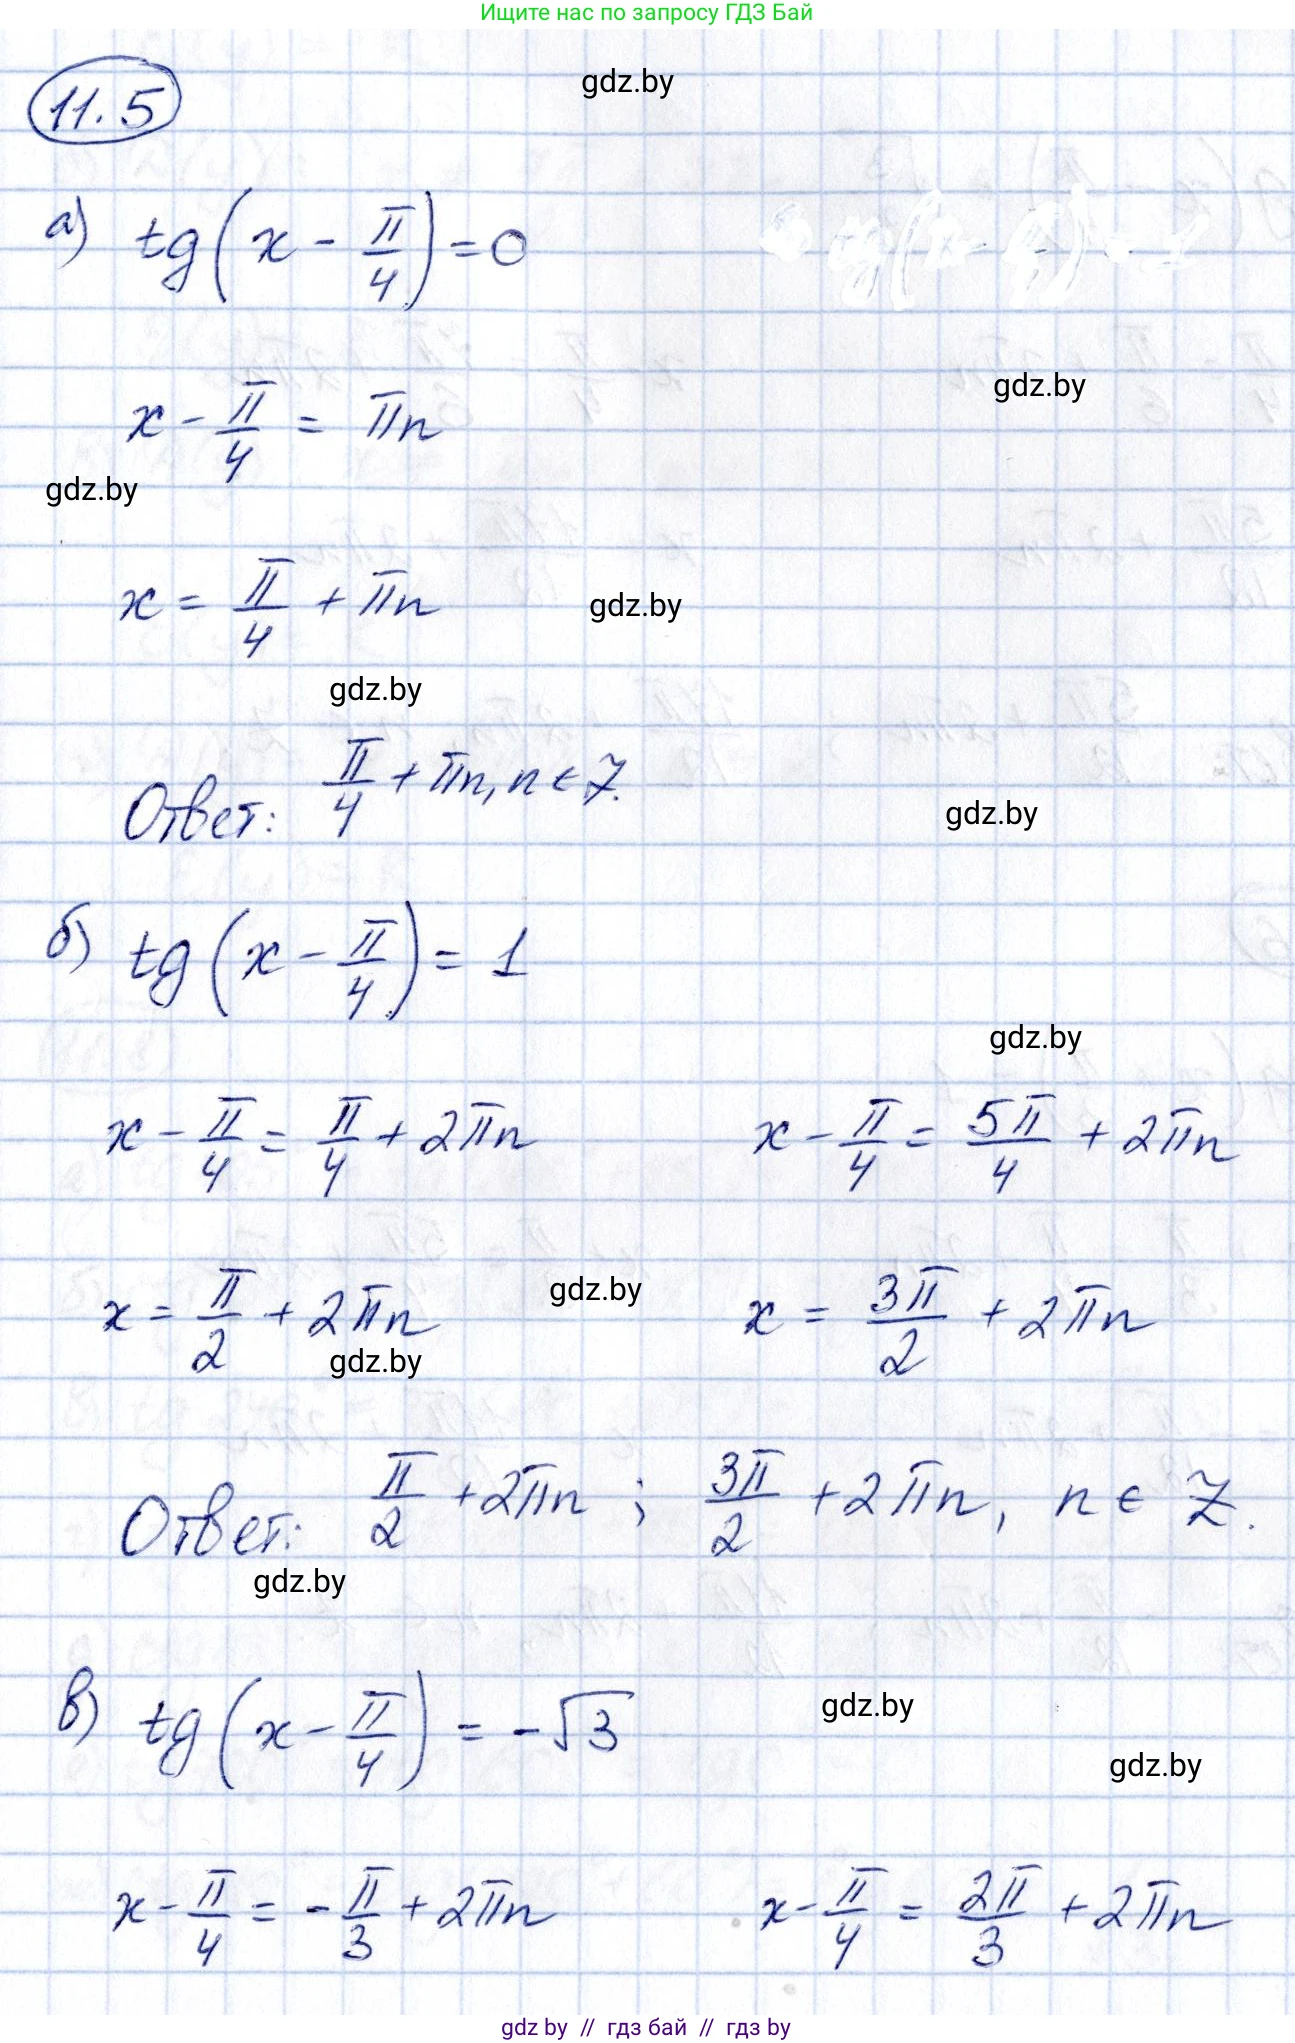 Ищите нас по запросу ГДЗ Бай
11.5
gdz.by
а) tg(x - π/4) = 0
gdz.by
x - π/4 = πn
gdz.by
x = π/4 + πn
gdz.by
gdz.by
Ответ: π/4 + πn, n ∈ Z.
gdz.by
б) tg(x - π/4) = 1
gdz.by
x - π/4 = π/4 + 2πn x - π/4 = 5π/4 + 2πn
x = π/2 + 2πn gdz.by x = 3π/2 + 2πn
gdz.by
Ответ: π/2 + 2πn ; 3π/2 + 2πn, n ∈ Z.
gdz.by
в) tg(x - π/4) = -√3
gdz.by
gdz.by
x - π/4 = - π/3 + 2πn x - π/4 = 2π/3 + 2πn
gdz.by // гдз бай // гдз by